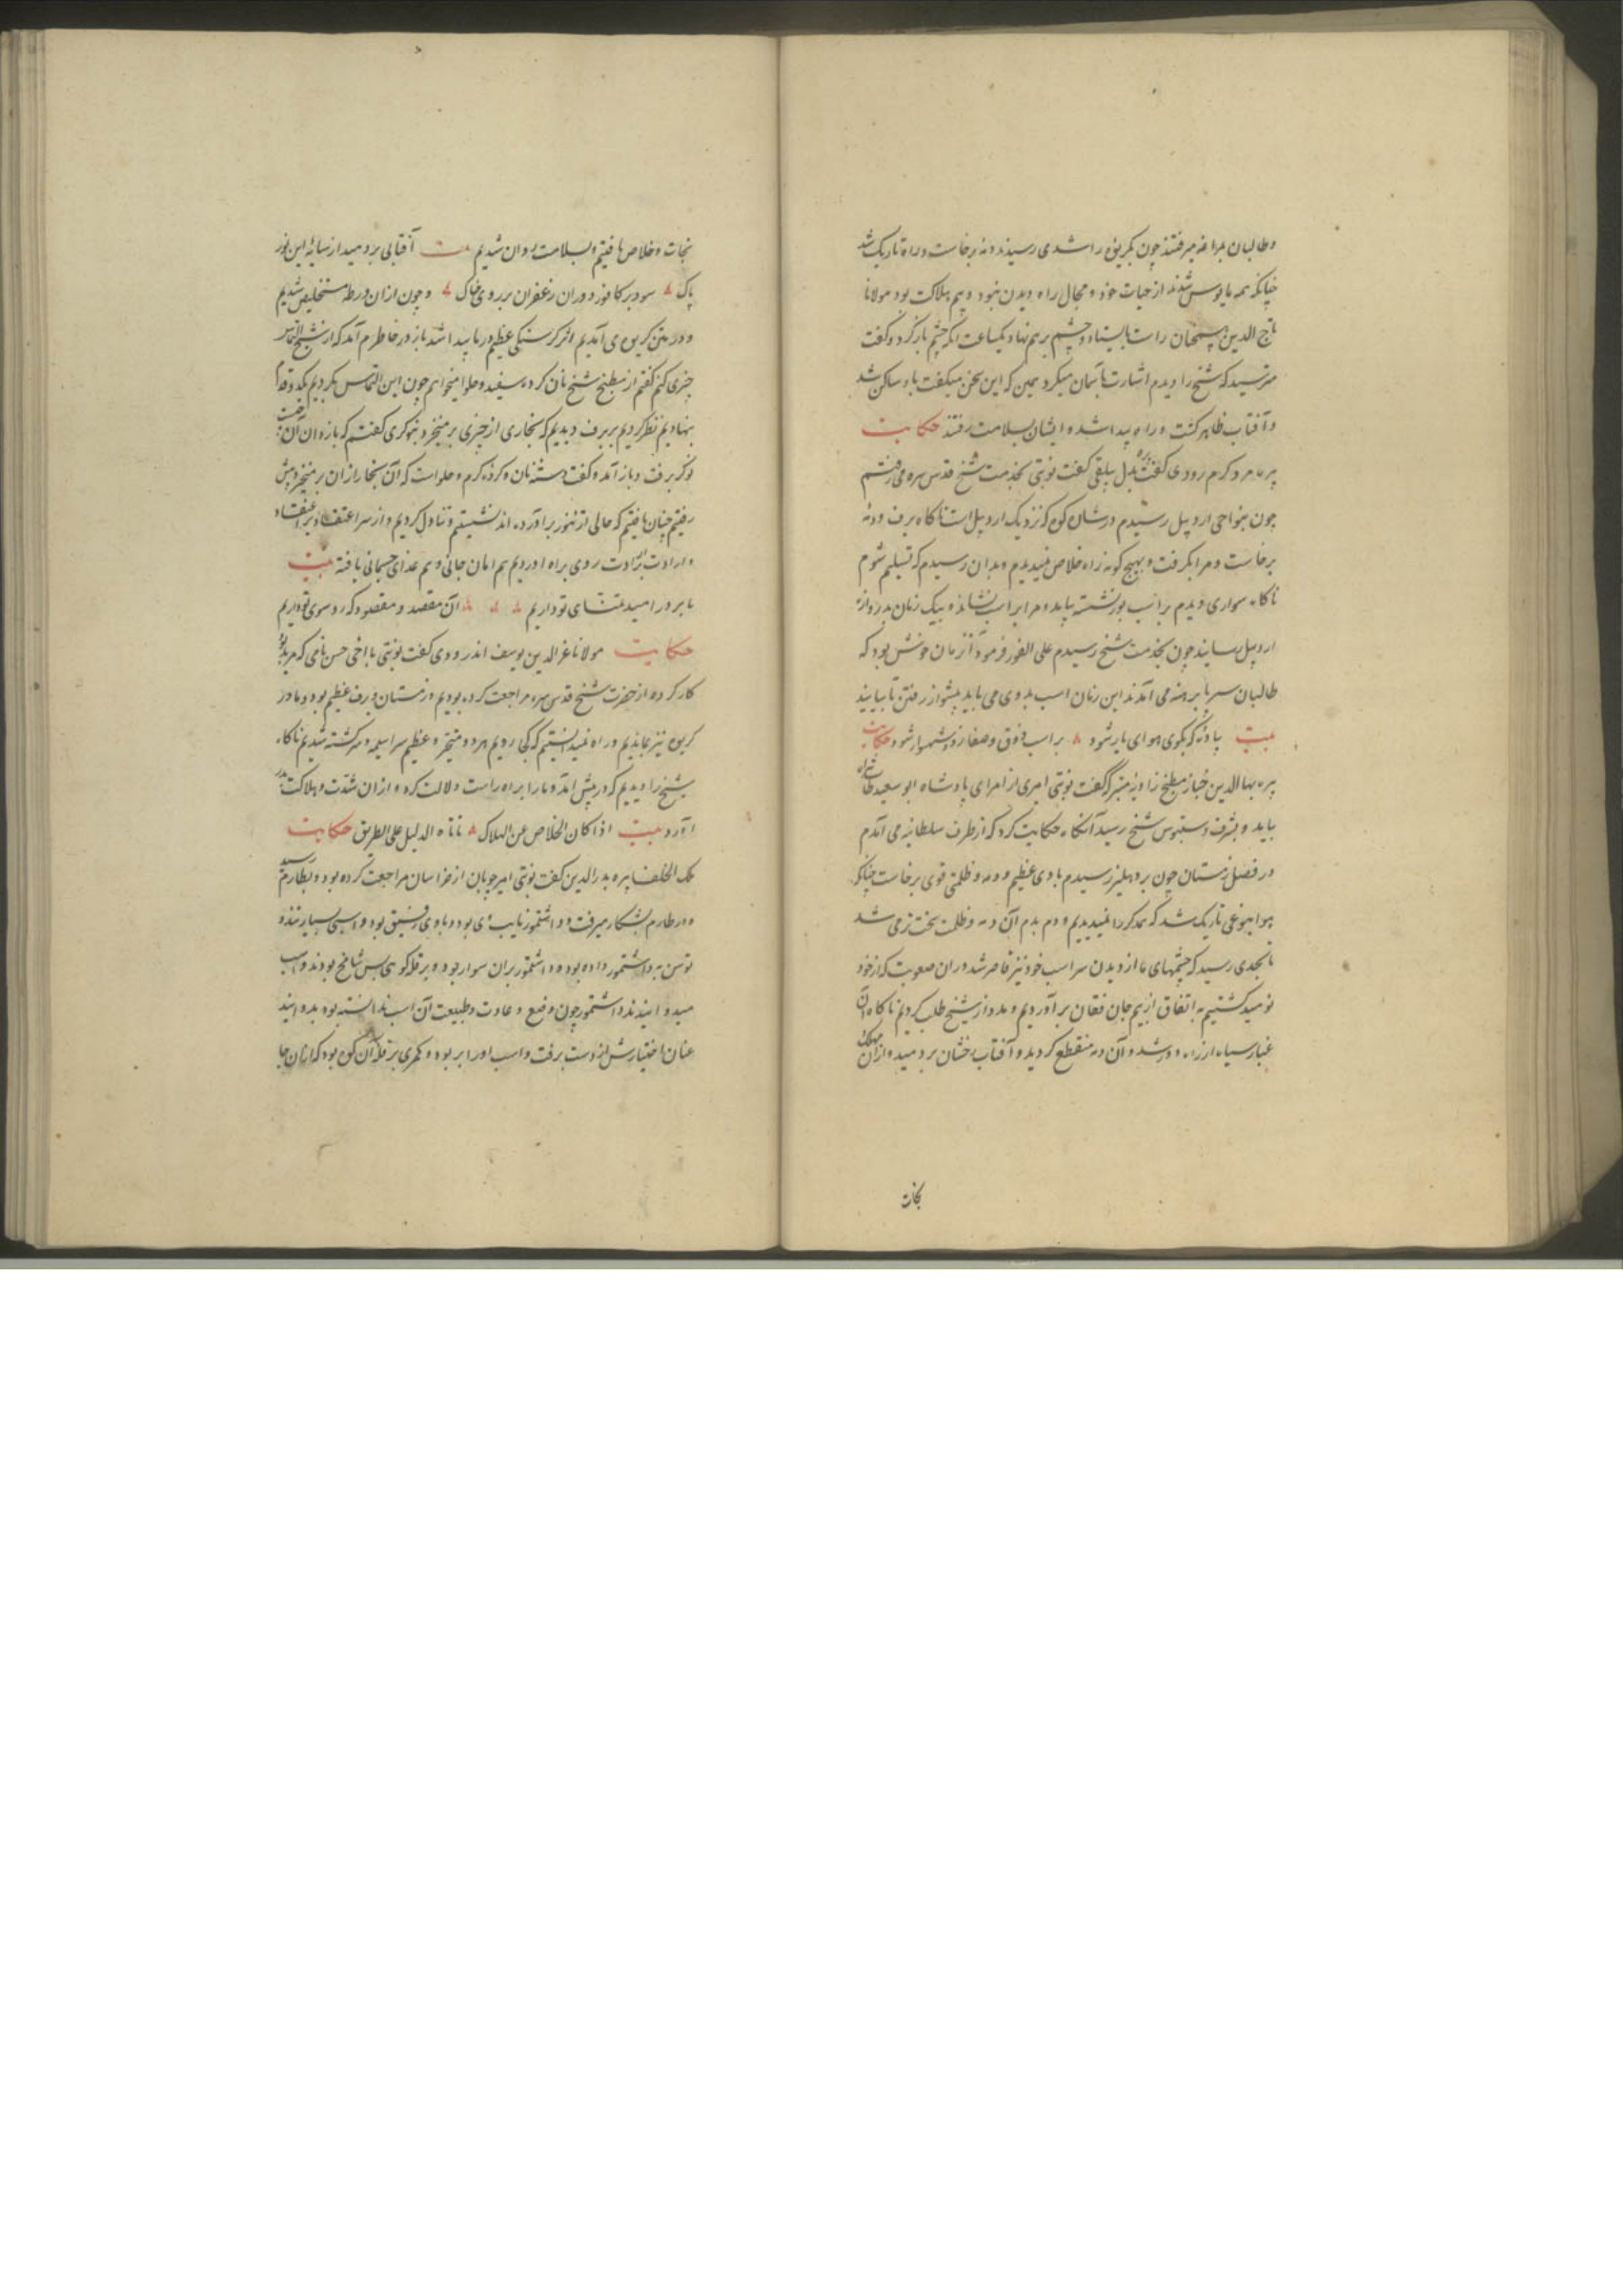 و طالبان بمراغه میرفتند چون بکریوه راشدی رسیدند دمه برخاست و راه تاریک شد
چنانکه همه مایوس شدند از حیات خود و مجال راه دیدن نبود و بیم هلاکت بود مولانا
تاج الدین راست بایستاد و چشم برهم نهاد و یکساعت انکه چشم باز کرد و گفت
مترسید که شیخ را دیدم اشارت بآسمان میکرد همین که این سخن میگفت باد ساکن شد
و آفتاب ظاهر گشت و راه پیدا شد و ایشان بسلامت رفتند حکایت
پیره مرد کرم رودی گفت نوبتی بخدمت شیخ قدس سره می رفتم
چون بنواحی اردبیل رسیدم در شان کوه که نزدیک اردبیل است ناکاه برف و دمه
برخاست و مرا بگرفت و بهیچ گونه راه خلاص نمیدیدم و بدان رسیدم که تسلیم شوم
ناکاه سواری دیدم بر اسب بور نشسته بیامد و مرا بر اسب نشاند و بیک زمان بدروازه
اردبیل رسانید چون بخدمت شیخ رسیدم علی الفور فرمود آن زمان خوش بود که
طالبان سر پا برهنه می آمدند این زمان اسب بدوی می باید پیشواز رفتن تا بیایند
بیت بادی که بکوی هوای یار شود بر اسب ذوق و صفا زود شهسوار شود حکایت
پیره بها الدین خباز مطبخ زاویه متبرکه گفت نوبتی امیری از امرای پادشاه ابو سعید
بیامد و بشرف دستبوس شیخ رسید آنکاه حکایت کرد که از طرف سلطانیه می آمدم
در فصل زمستان چون بر دهلیز رسیدم بادی عظیم و دمه و ظلمتی قوی برخاست چنانکه
هوا بنوعی تاریک شد که همدکر را نمیدیدیم و دم بدم آن دمه و ظلمت سخت تر می شد
تا بحدی رسید که چشمهای ما از دیدن سر اسب خود نیز قاصر شد در ان صعوبت که از خود
نومید گشتیم به اتفاق از بیم جان فغان برآوردیم و مدد از شیخ طلب کردیم ناکاه آن
غبار سیاه از راه دور شد و آن دمه منقطع گردید و آفتاب رخشان بردمید و از آن مهلکه
نجات
نجات و خلاص یافتیم و بسلامت روان شدیم بیت آفتابی بردمید از سایۀ این نور
پاک سود بر کافور دوران زعفران بر روی خاک و چون از ان ورطه مستخلص شدیم
و در متن کریوه می آمدیم اثر گرسنگی عظیم در ما پیدا شد باز در خاطرم آمد که از شیخ التماس
چیزی کنم گفتم از مطبخ شیخ نان گرده سفید و حلوا میخواهم چون این التماس بکردیم یکدو قدم
بنهادیم نظر کردیم بر برف دیدیم که بخاری از چیزی بر میخیزد بنوکری گفتم که باز دان آن چیست
نوکر برفت و باز آمد و گفت دسته نان گرده گرم و حلواست که آن بخار از ان بر میخیزد پیش
رفتیم چنان یافتیم که حالی از تنور برآورده اند نشستیم و تناول کردیم و از سر اعتقاد بر اعتقاد
و ارادت بر ارادت روی براه اوردیم هم امان جانی و هم غذای جسمانی یافته بیت
ما بر در امید تمنای تو داریم آن مقصد و مقصود که رو سوی تو داریم
حکایت مولانا عز الدین یوسف اندرودی گفت نوبتی با اخی حسن نامی که مرید بود
کار کرده از حضرت شیخ قدس سره مراجعت کرده بودیم و زمستان و برف عظیم بود و ما در
کریوه نیز بماندیم و راه نمیدانستیم که کجا رویم هر دو متحیر و عظیم سراسیمه و سرگشته شدیم ناکاه
شیخ را دیدیم که در پیش آمد و ما را براه راست دلالت کرد و از ان شدت و هلاکت بدر
آورد بیت اذا کان الخلاص عن الهلاک اتاه الدلیل علی الطریق حکایت
ملک الخلفا پیره بدر الدین گفت نوبتی امیر چوبان از خراسان مراجعت کرده بود و بطارم رسید
و در طارم بشکار میرفت و داشتمور نایب وی بود و با وی رفیق بود و اسبی بسیار تند و
توسن به داشتمور داده بود و داشتمور بران سوار بود و بر قله کوهی بس شامخ بودند و اسب
میدوانیدند و داشتمور چون وضع و عادت و طبیعت آن اسب ندانسته بود بدوانید
عنان اختیارش از دست برفت و اسب او را بر بود و کمری بر قله آن کوه بود که از ان جا